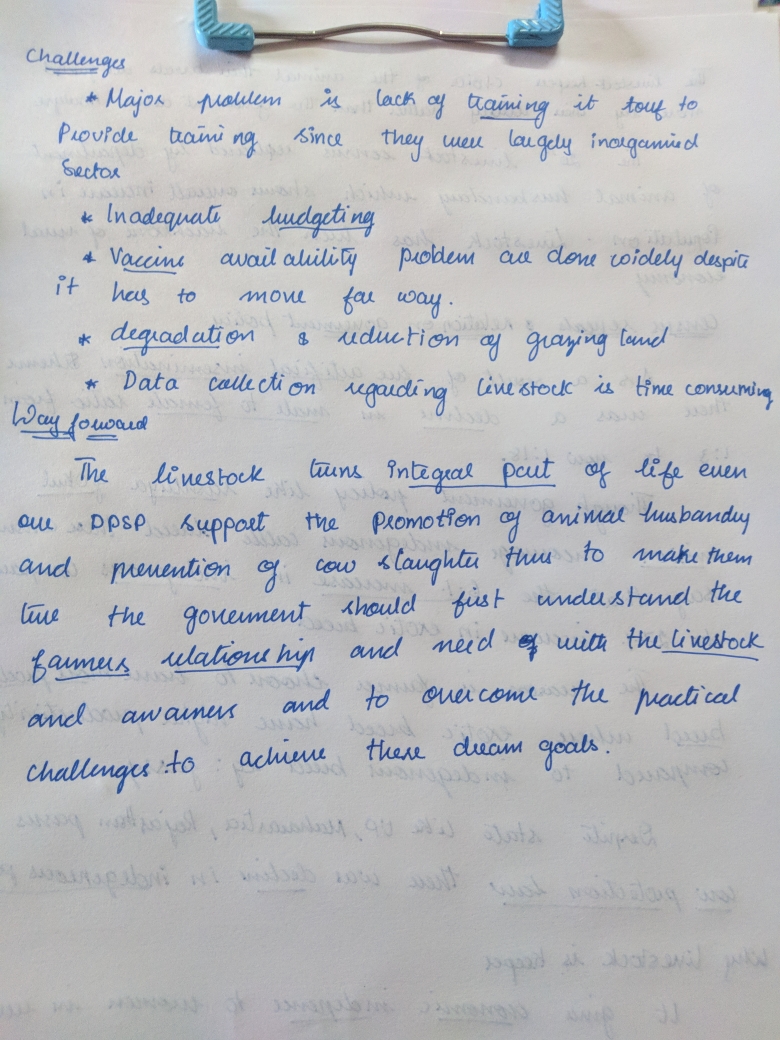 Challenges
* Major problem is lack of training it touf to
Provide training since they were largely inorganised
Sector
* Inadequate budgeting
* Vaccine availability problem are done widely despite
it has to move far way.
* degradation & reduction of grazing land
* Data collection regarding livestock is time consuming
Way forward
The livestock turns integral part of life even
our DPSP support the promotion of animal husbandry
and prevention of cow slaughter thus to make them
true the government should first understand the
farmers relationship and need of with the livestock
and awarness and to overcome the practical
challenges to achieve these dream goals.